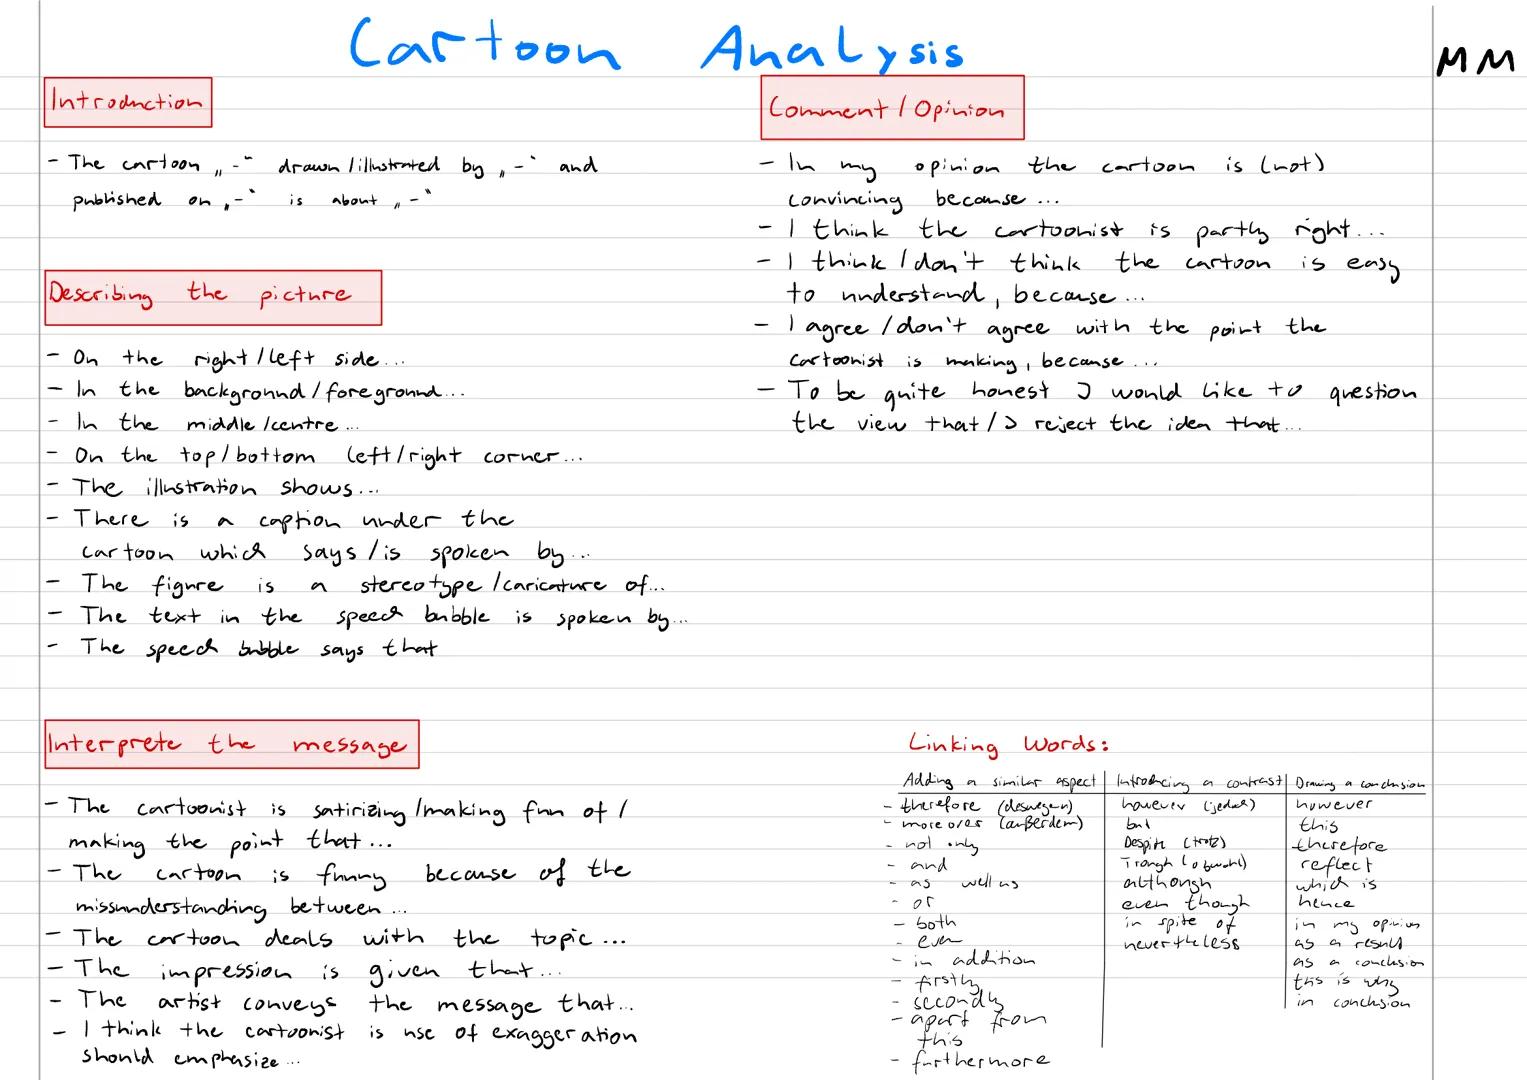 Cartoon Analysis
MM
Introduction
- The cartoon „-“ drawn/illustrated by „-“ and
published on „-“ is about „-“
Describing the picture
- On the right/left side...
- In the background/foreground...
- In the middle/centre...
- On the top/bottom left/right corner...
- The illustration shows...
- There is a caption under the
cartoon which says/is spoken by...
- The figure is a stereotype/caricature of...
- The text in the speech bubble is spoken by...
- The speech bubble says that
Interprete the message
- The cartoonist is satirizing/making fun of/
making the point that...
- The cartoon is funny because of the
missunderstanding between...
- The cartoon deals with the topic...
- The impression is given that...
- The artist conveys the message that...
- I think the cartoonist is use of exaggeration
should emphasize...
Comment/Opinion
- In my opinion the cartoon is (not)
convincing because...
- I think the cartoonist is partly right...
- I think/don't think the cartoon is easy
to understand, because...
- I agree/don't agree with the point the
cartoonist is making, because...
- To be quite honest I would like to question
the view that/I reject the idea that...
Linking Words:
Adding a similar aspect
- therefore (deswegen)
- moreover (außerdem)
- not only
- and
- as well as
- or
- both
- even
- in addition
- firstly
- secondly
- apart from
this
- furthermore
Introducing a contrast
however (jedoch)
but
Despite (trotz)
(obwohl)
although
even though
in spite of
nevertheless
Drawing a conclusion
however
this
therefore
reflect
which is
hence
in my opinion
as a result
as a conclusion
this is why
in conclusion